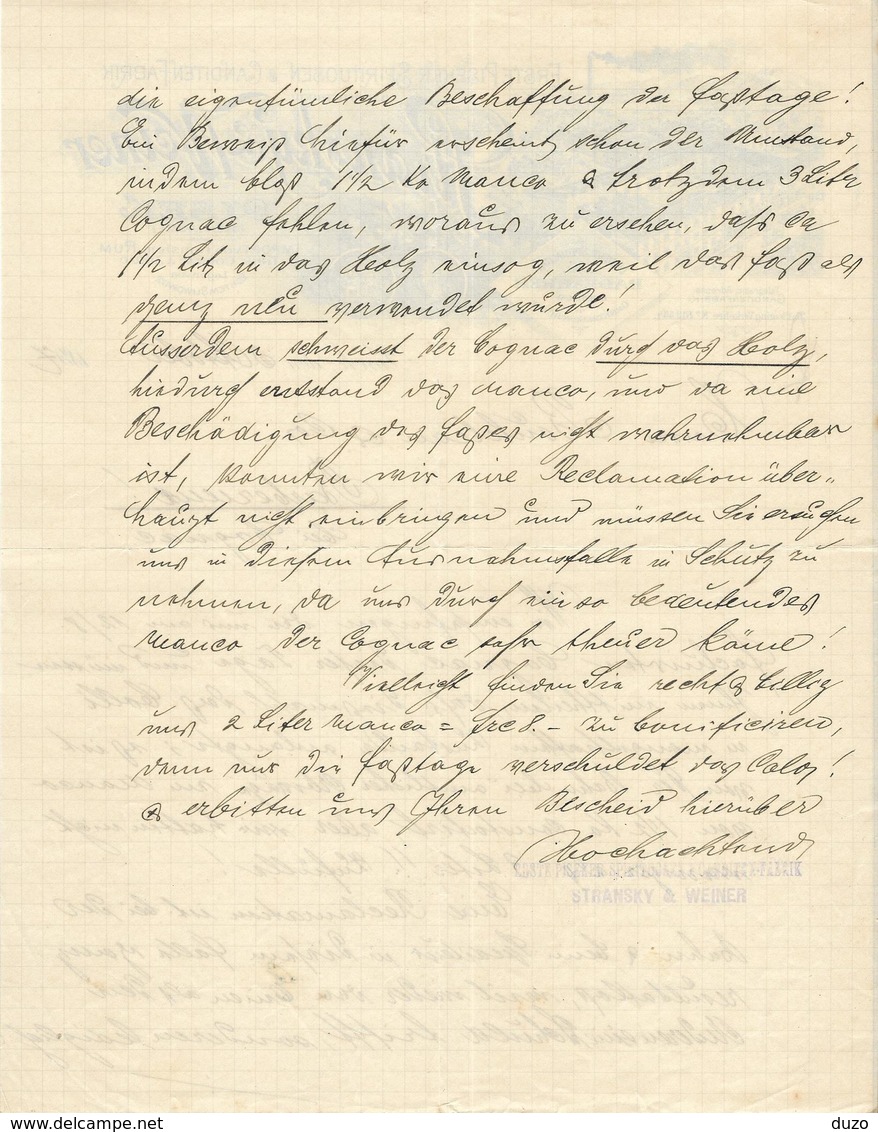 die eigentümliche Beschaffung der Fastage!
Ein Beweiß hiefür erscheint schon der Umstand,
indem bloß 1 1/2 Ko Manco & trotzdem 3 Liter
Cognac fehlen, woraus zu ersehen, daß ca
1 1/2 Lit in das Holz einsog, weil das Faß als
ganz neu verwendet wurde!
Ausserdem schweisst der Cognac durch das Holz,
hiedurch entstand das Manco, und da eine
Beschädigung des Faßes nicht wahrnehmbar
ist, konnten wir eine Reclamation über„
haupt nicht einbringen und müssen Sie ersuchen
uns in diesem Ausnahmsfalle in Schutz zu
nehmen, da uns durch ein so bedeutendes
Manco der Cognac sehr theuer käme!
Vielleicht finden Sie recht & billig
uns 2 Liter Manco = frc 8.- zu bonificiren,
denn nur die Fastage verschuldet das Calo!
& erbitten uns Ihren Bescheid hierüber
Hochachtend
ERSTE PISEKER SPIRITUOSEN & CANDITEN-FABRIK
STRANSKY & WEINER
duzo